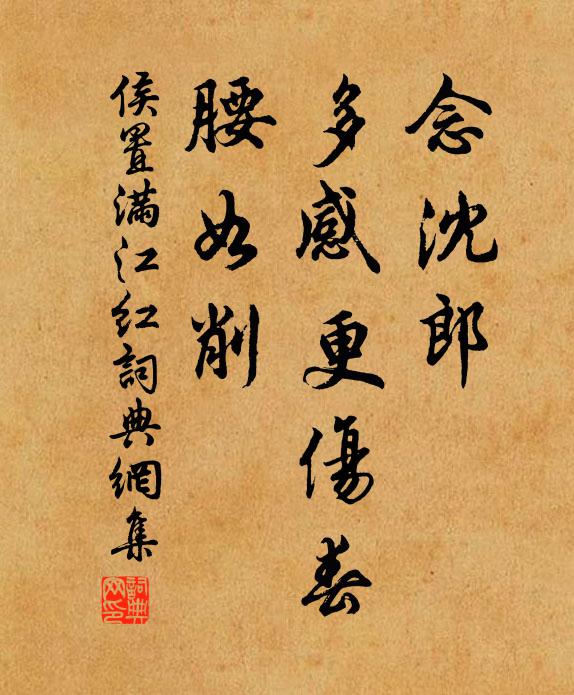 念沈郎
多感更傷春
腰如削
侯置滿江紅詞典網集
詞典
网印